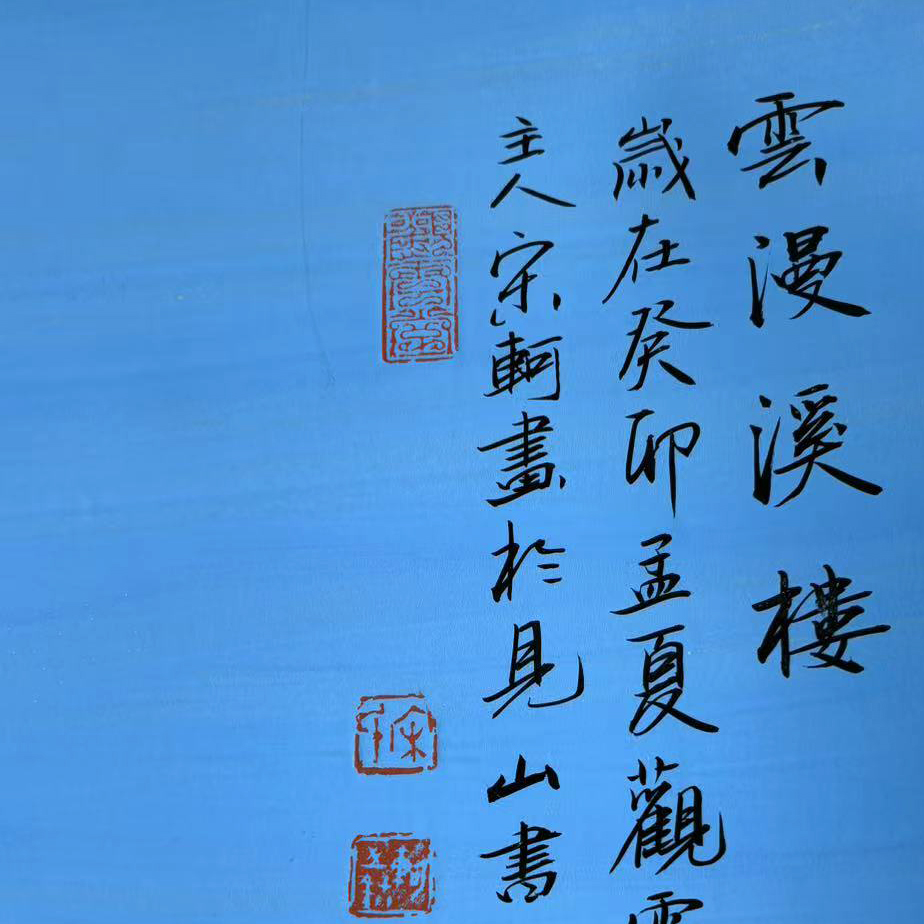 雲漫溪樓
歲在癸卯孟夏觀雲
主人宋軻畫於見山書